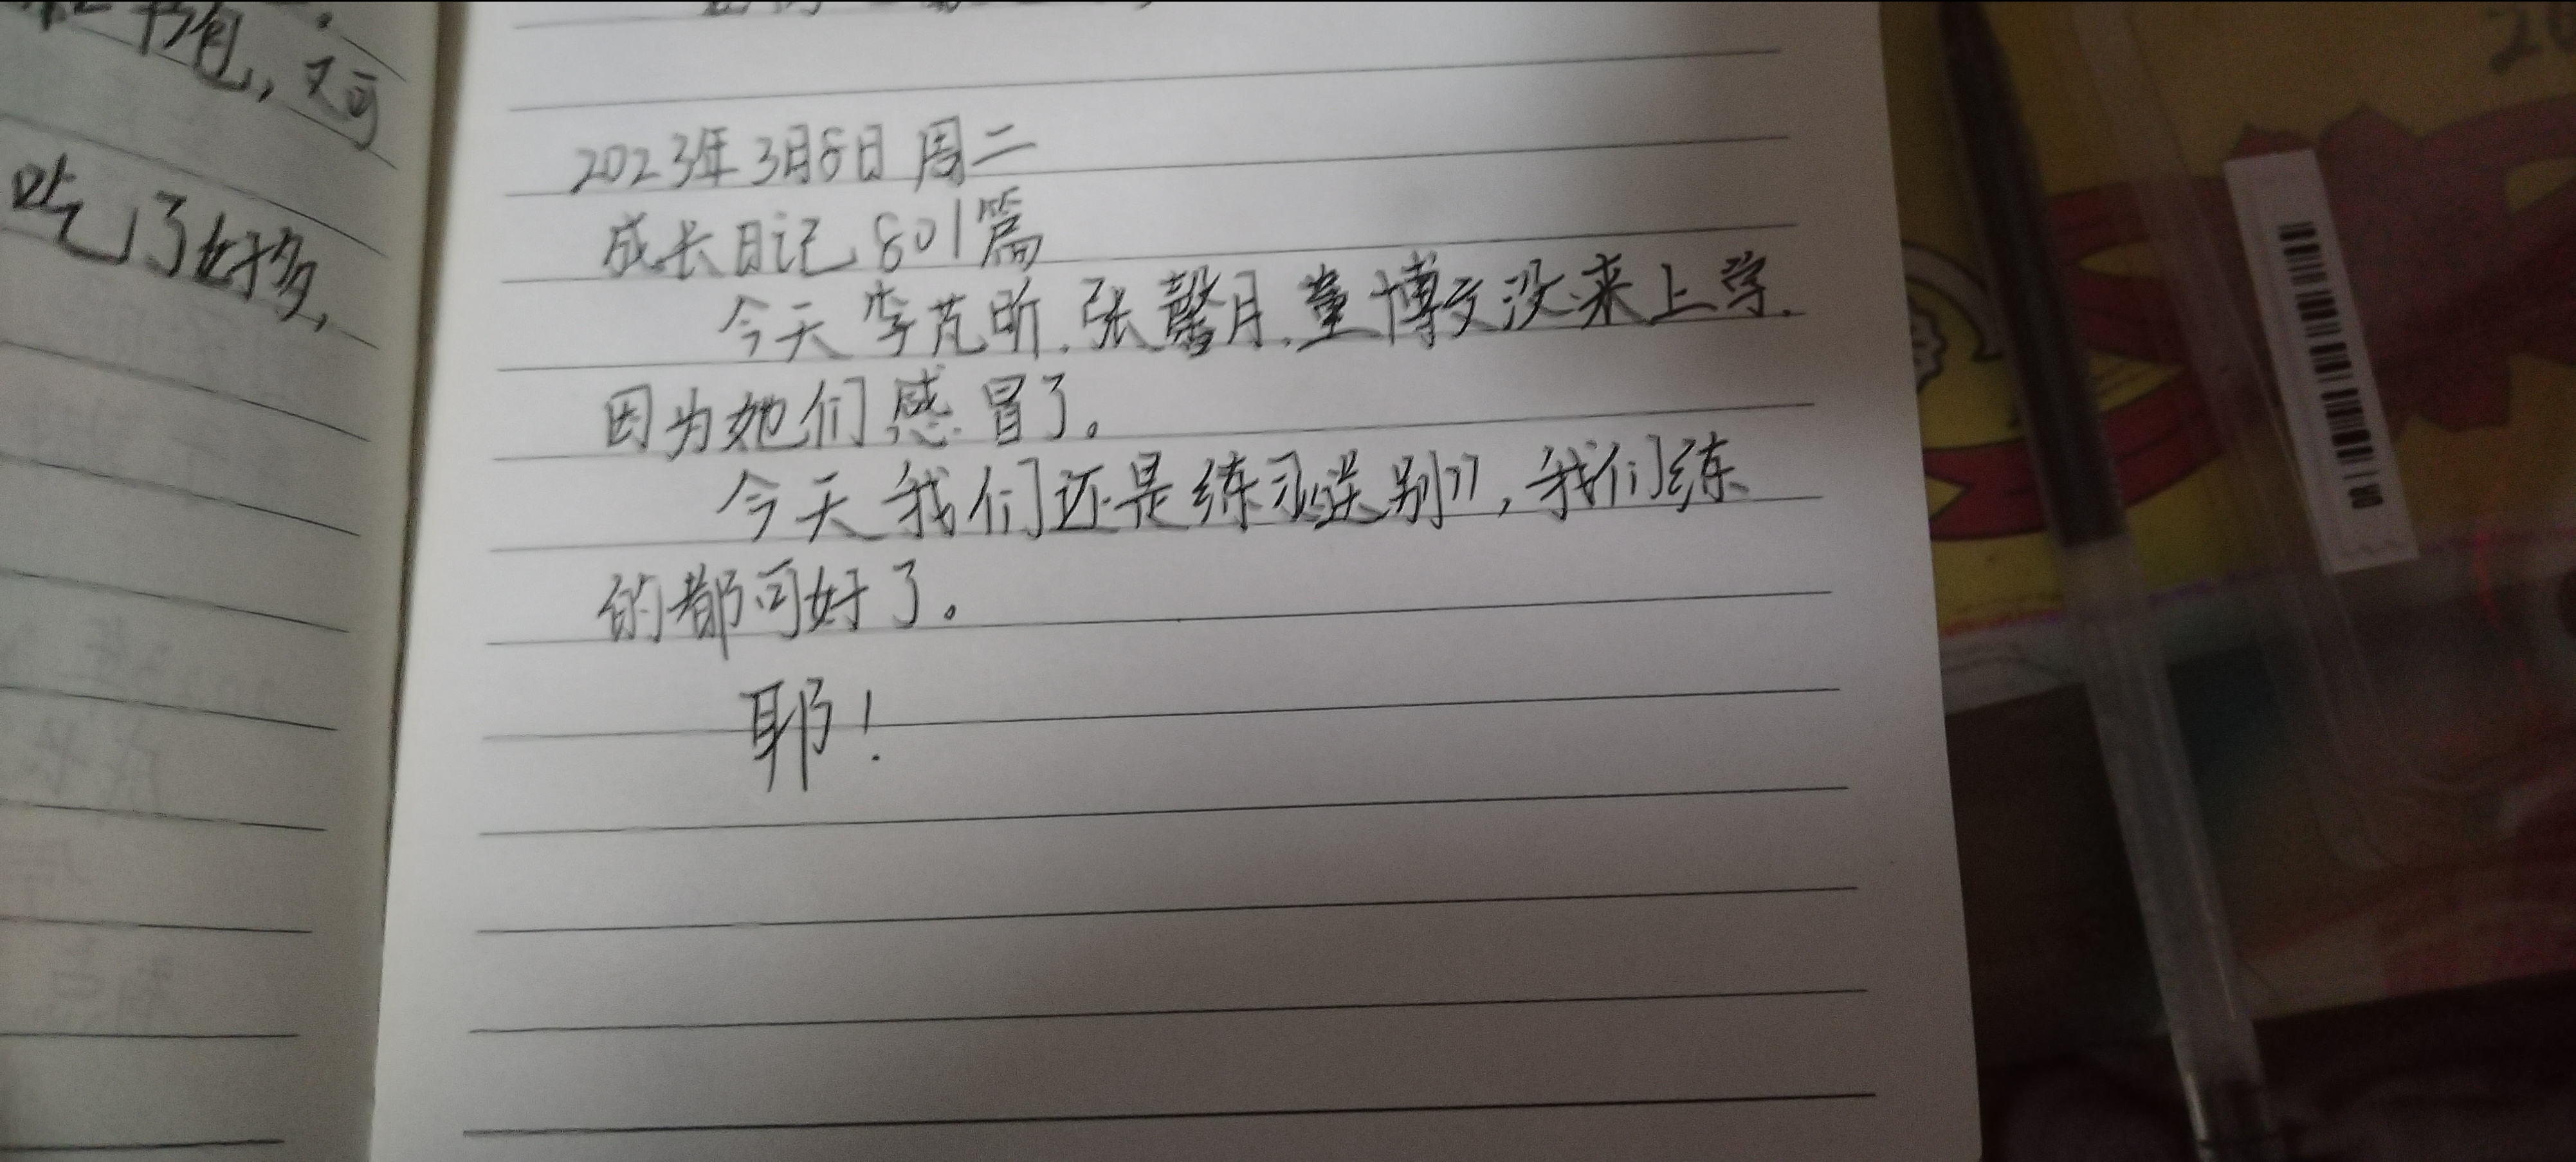 书包，又可
吃了好多，
2023年3月8日 周二
成长日记 801篇
今天李芃昕.张馨月.董博文没来上学.
因为她们感冒了。
今天我们还是练习《送别》，我们练
的都可好了。
耶！